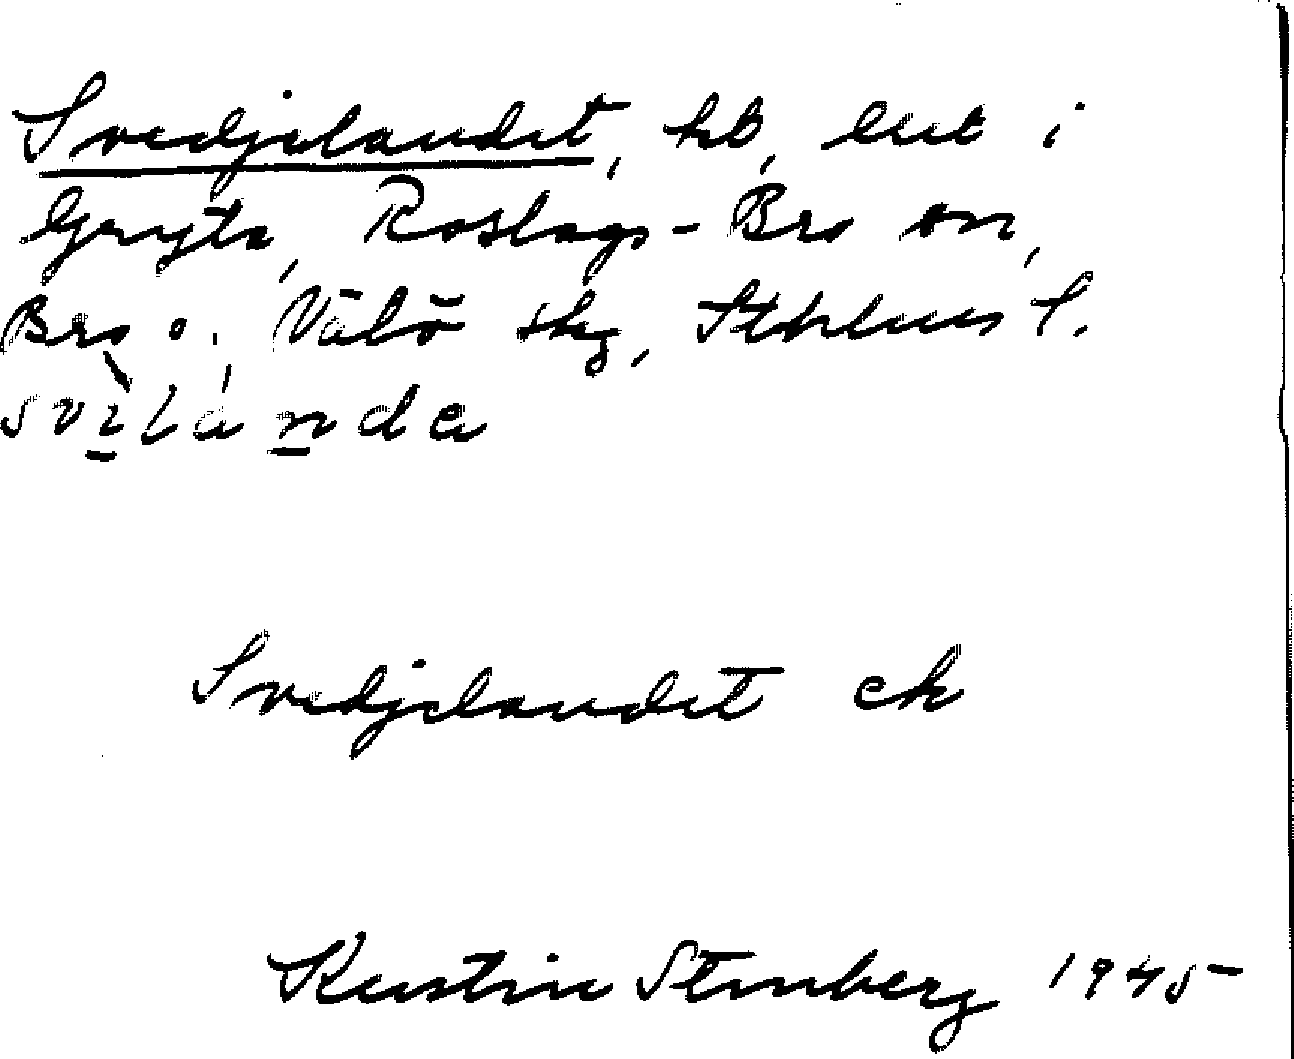 Svedjelandet, hb, ent i
Gryta, Roslags-Bro sn,
Bro o. Vätö skg, Sthlms l.
Svedjelandet ek
Kerstin Stenberg 1945